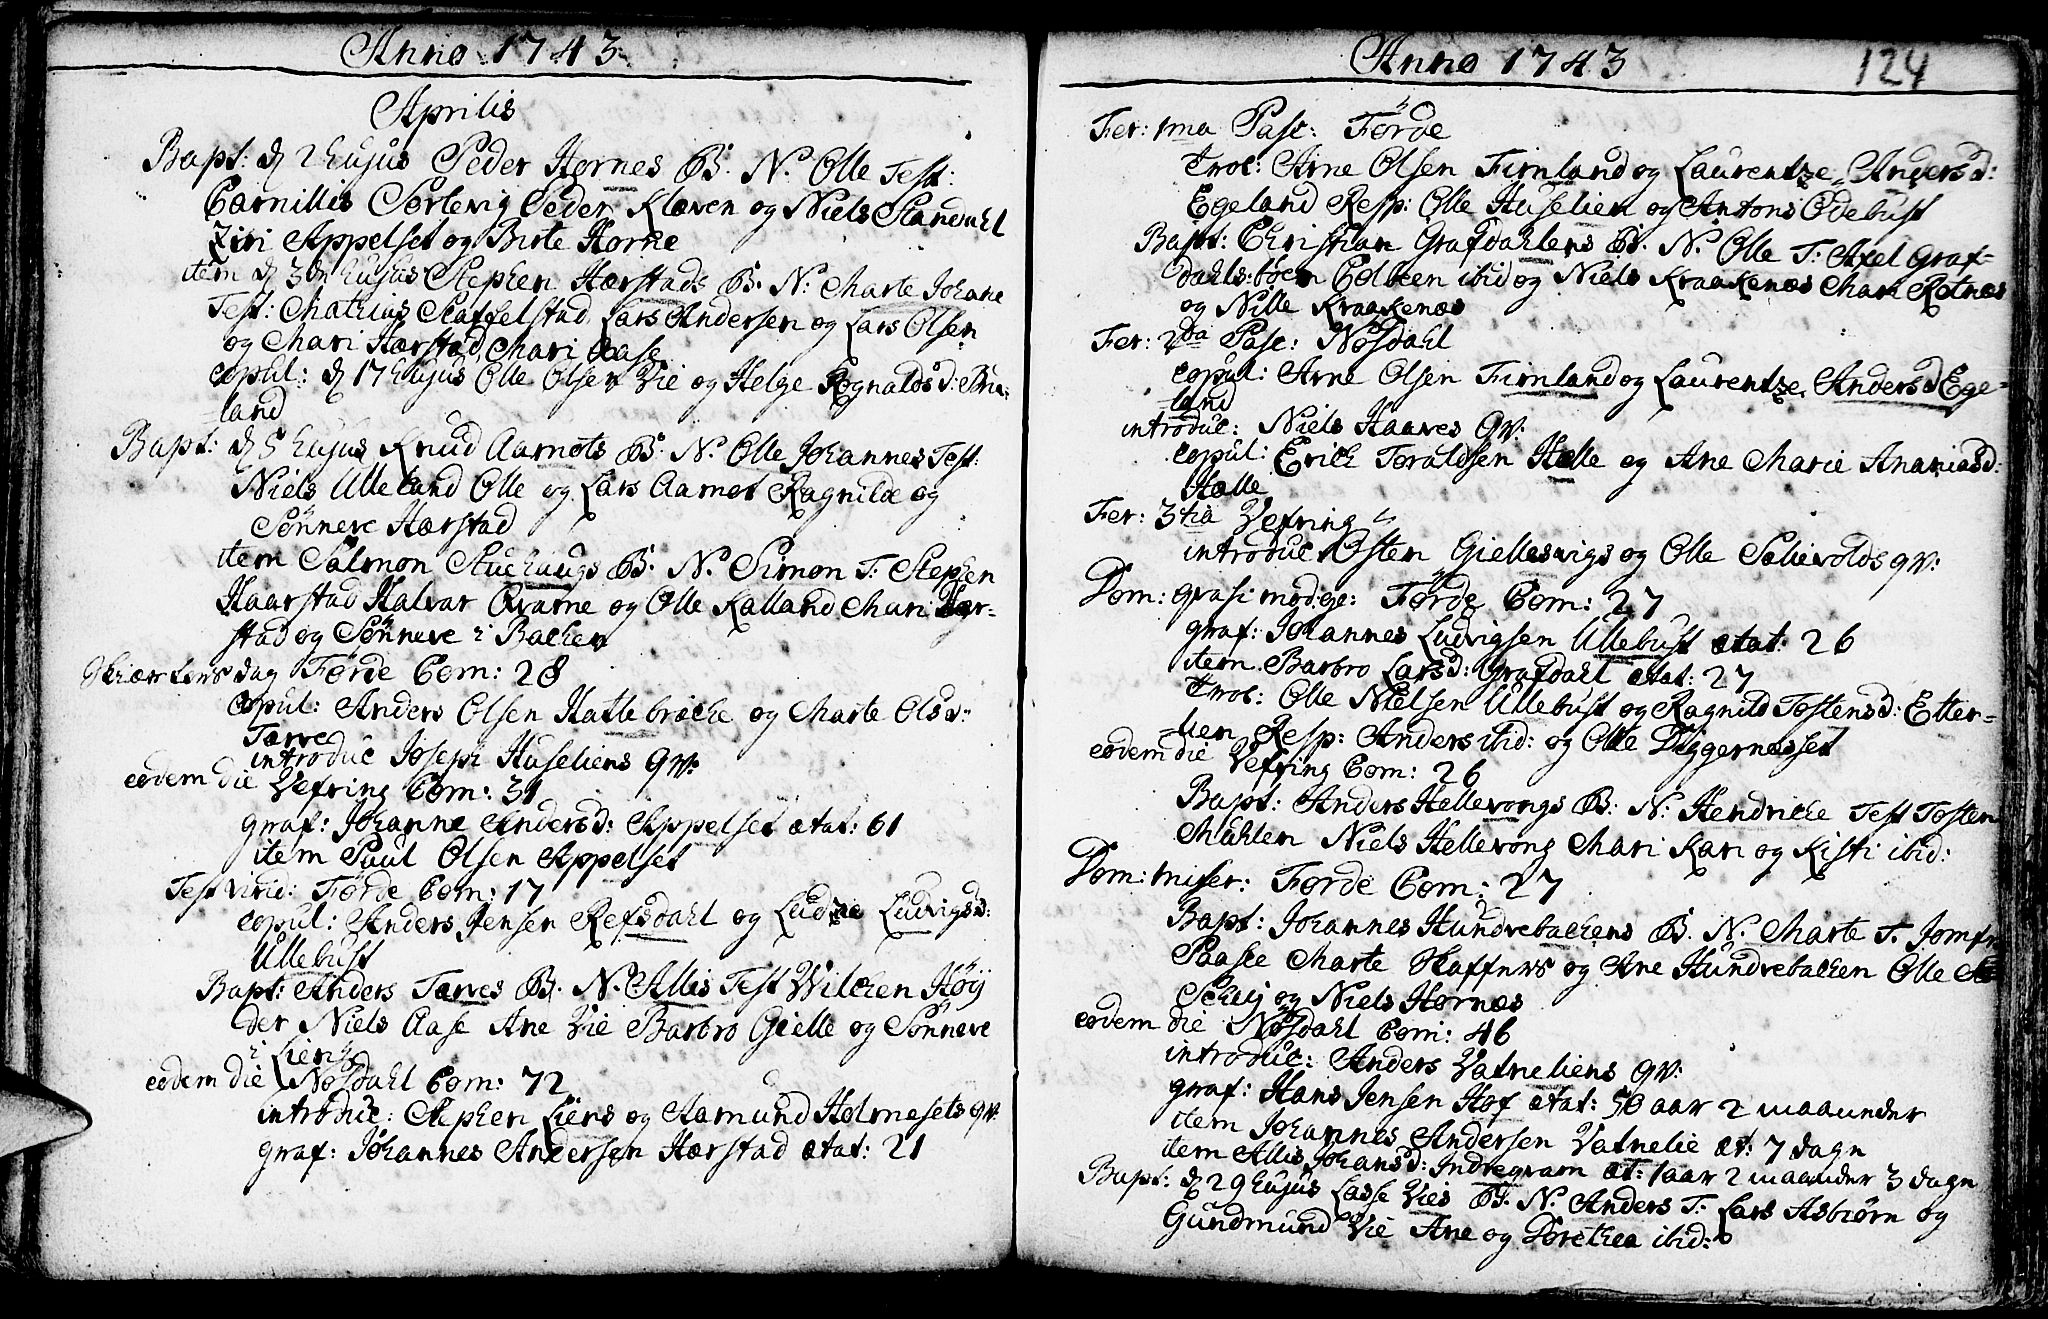 Anno 1743
Aprilis
Bapt: d 2 hujus Peder Hornes B. N. Olle Test:
Camillis Sørlevig Peder Klæven og Niels Standahl
Ziri Appelset og Birte Horne
item d 3 hujus Stephen Hærstads B. N: Marte Johane
Test: Mathias Lars Andersen og Lars Olsen
og Mari Hærstad Mari Aase
copul: d 17 hujus Olle Olsen Vie og Helge Rognalds d: Bru-
land
Bapt: d 5 hujus Knud Aamots B. N. Olle Johannes Test:
Niels Ulleland Olle og Lars Aamot Ragnilde og
Sønneve Hærstad
item Salmon Stuehaugs B. N. Simon T: Stephen
Haarstad Halvar Qvame og Olle Kalland Mari Hær-
stad og Sønneve i Backen
Skiærtorsdag Førde Com: 28
Copul: Anders Olsen Hattebræcke og Marte Ols d:
Tarve
introduc Joseph Huseliens qv:
eodem die Vefring Com: 31
graf: Johanne Anders d: Appelset ætat: 61
item Paul Olsen Appelset
Fest virid: Førde Com: 17
copul: Anders Jensen Refsdahl og Ludvigs d:
Ullebust
Bapt: Anders Tarves B. N. Allis Test Wilchen Höy
der Niels Aase Ane Vie Barbro Gielle og Sønneve
i Lien
eodem die Nøsdahl Com: 72
introduc: Stephen Liens og Aamund Holmesets qv:
graf: Johannes Andersen Hærstad ætat: 21
Anno 1743 124
Fer: 1ma Pasc: Førde
Trol: Arne Olsen Fimland og Laurentze Anders d:
Egeland Resp: Olle Huselien og Antoni Ødebust
Bapt: Christian Grafdahlens B. N. Olle T: Axel Graf-
dahls: ibid og Niels Kraakenæs Mari Rotnæs
og Nille Kraakenæs
Fer: 2da Pasc: Nøsdahl
copul: Arne Olsen Fimland og Laurentze Anders d Ege-
land
introduc: Niels Haaves qv:
copul: Erich Toraldsen Hælle og Ane Marie Ananias d:
Hælle
Fer: 3tia Vefring
introduc Østen Giellesvigs og Olle Solievolds qv:
Dom: qvasi mod: ge: Førde Com: 27
graf: Johannes Ludvigsen Ullebust ætat: 26
item Barbro Lars d: Grafdahl ætat: 27
Trol: Olle Nielsen Ullebust og Ragnild Tostens d: Etter-
lien Resp: Anders ibid: og Olle Diggernesset
eodem die Vefring Com: 26
Bapt: Anders Hellevongs B: N: Hendriche Test Tosten
Mahlen Niels Hellevong Mari Kari og Kisti ibid:
Dom: miser: Førde Com: 27
Bapt: Johannes Hundrebackens B. N. Marte T. Jomfr
Paasce Marte Skaffners og Ane Hundrebacken Olle
og Niels Hornæs
eodem die Nøsdahl Com: 46
introduc: Anders Vatneliens qv:
graf: Hans Jensen Hof ætat: 50 aar 2 maaneder
item Johannes Andersen Vatnelie æt: 7 dage
item Allis Johans d: Indregram æt: 1 aar 2 maaneder 3 dage
Bapt: d 29 hujus Lasse Vies B. N. Anders T. Lars Asbiørn og
Gundmund Vie Ane og Dorethea ibid: